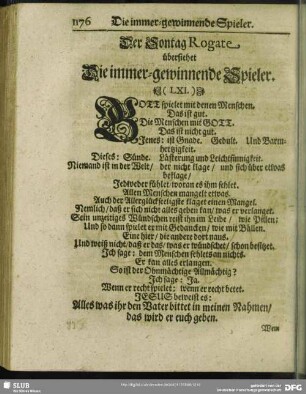 1176 Die immer-gewinnende Spieler.
Der Sontag Rogate
übersiehet
Die immer-gewinnende Spieler.
(LXI.)
GOTT spielet mit denen Menschen.
Das ist gut.
Die Menschen mit GOTT.
Das ist nicht gut.
Jenes: ist Gnade. Gedult. Und Barm-
hertzigkeit.
Dieses: Sünde. Lästerung und Leichtsinnigkeit.
Niemand ist in der Welt/ der nicht klage/ und sich über etwas
beklage/
Jedweder fühlet/ woran es ihm fehlet.
Allen Menschen mangelt etwas.
Auch der Allerglückseeligste klaget einen Mangel.
Nemlich/ daß er sich nicht alles geben kan/ was er verlanget.
Sein unzeitiges Wündschen reist ihn im Leibe/ wie Pillen:
Und so dann spielet er mit Gedancken/ wie mit Bällen.
Eine hier/ die andere dort naus.
Und weiß nicht/ daß er das/ was er wündschet/ schon besitzet.
Ich sage: dem Menschen fehlets an nichts.
Er kan alles erlangen.
So ist der Ohnmächtige Allmächtig?
Ich sage: Ja.
Wenn er recht spielet; wenn er recht betet.
JESUS beweist es:
Alles was ihr den Vater bittet in meinen Nahmen/
das wird er euch geben.
Wem
SLUB
Wir führen Wissen.